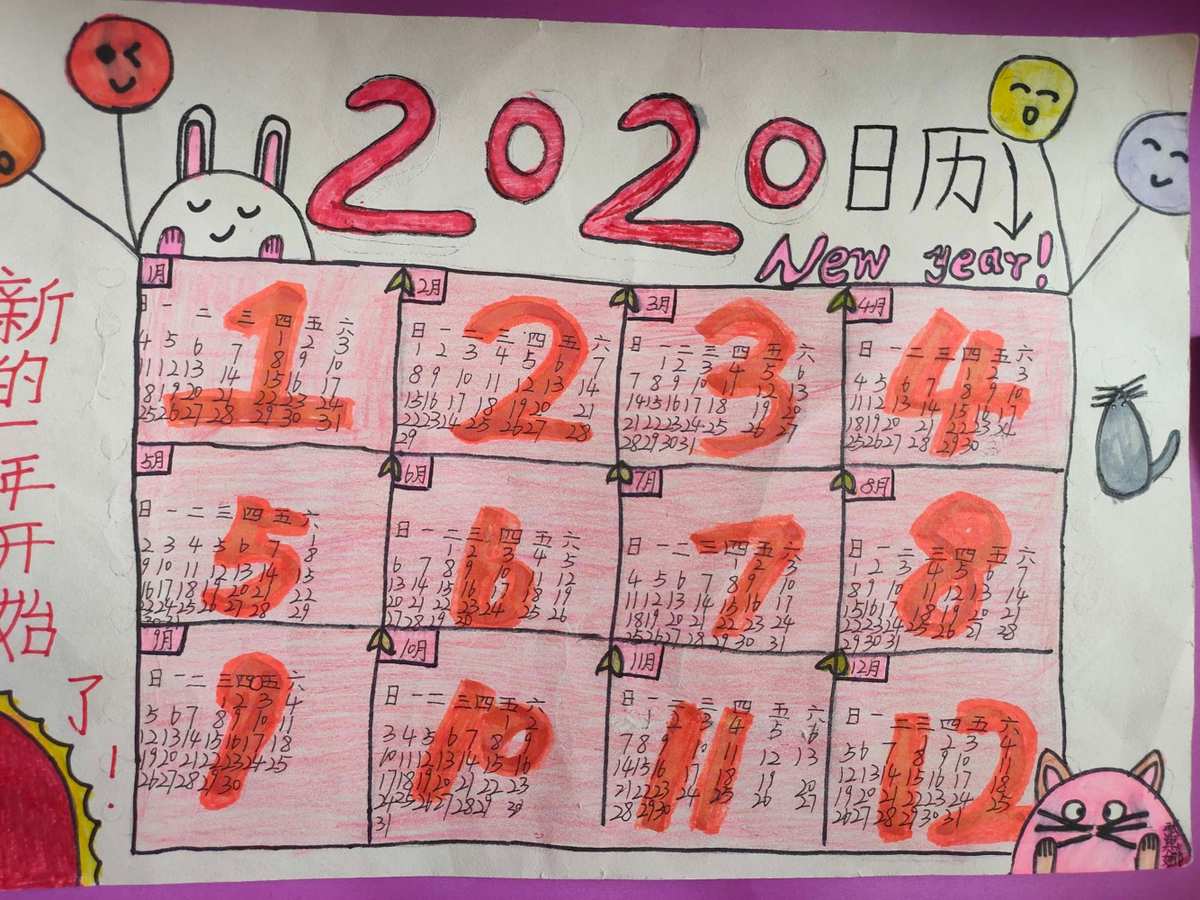 2020日历
New year!
新的一年开始了!
1月
1
日 一 二 三 四 五 六
1 2 3
4 5 6 7 8 9 10
11 12 13 14 15 16 17
18 19 20 21 22 23 24
25 26 27 28 29 30 31
2月
2
日 一 二 三 四 五 六
1 2 3 4 5 6 7
8 9 10 11 12 13 14
15 16 17 18 19 20 21
22 23 24 25 26 27 28
29
3月
3
日 一 二 三 四 五 六
1 2 3 4 5 6
7 8 9 10 11 12 13
14 15 16 17 18 19 20
21 22 23 24 25 26 27
28 29 30 31
4月
4
日 一 二 三 四 五 六
1 2 3
4 5 6 7 8 9 10
11 12 13 14 15 16 17
18 19 20 21 22 23 24
25 26 27 28 29 30
5月
5
日 一 二 三 四 五 六
1
2 3 4 5 6 7 8
9 10 11 12 13 14 15
16 17 18 19 20 21 22
23 24 25 26 27 28 29
30 31
6月
6
日 一 二 三 四 五 六
1 2 3 4 5
6 7 8 9 10 11 12
13 14 15 16 17 18 19
20 21 22 23 24 25 26
27 28 29 30
7月
7
日 一 二 三 四 五 六
1 2 3
4 5 6 7 8 9 10
11 12 13 14 15 16 17
18 19 20 21 22 23 24
25 26 27 28 29 30 31
8月
8
日 一 二 三 四 五 六
1 2 3 4 5 6 7
8 9 10 11 12 13 14
15 16 17 18 19 20 21
22 23 24 25 26 27 28
29 30 31
9月
9
日 一 二 三 四 五 六
1 2 3 4
5 6 7 8 9 10 11
12 13 14 15 16 17 18
19 20 21 22 23 24 25
26 27 28 29 30
10月
10
日 一 二 三 四 五 六
1 2
3 4 5 6 7 8 9
10 11 12 13 14 15 16
17 18 19 20 21 22 23
24 25 26 27 28 29 30
31
11月
11
日 一 二 三 四 五 六
1 2 3 4 5 6
7 8 9 10 11 12 13
14 15 16 17 18 19 20
21 22 23 24 25 26 27
28 29 30
12月
12
日 一 二 三 四 五 六
1 2 3 4
5 6 7 8 9 10 11
12 13 14 15 16 17 18
19 20 21 22 23 24 25
26 27 28 29 30 31